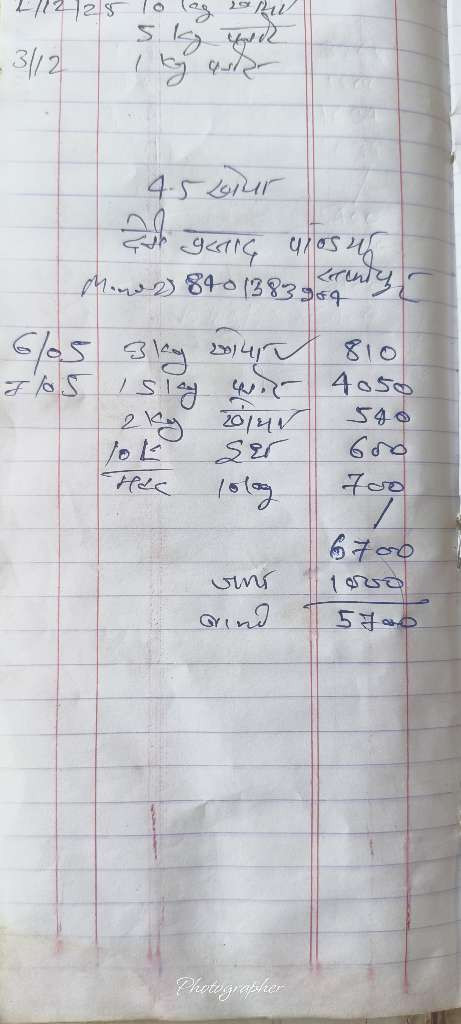 2/12/25 10 kg खोया
5 kg पनीर
3/12 1 kg पनीर
4.5 खोया
देवी प्रसाद
M.
6/05 3 kg खोया ✓ 810
7/05 15 kg पनीर 4050
2 kg खोया 540
10 K दूध 600
10 kg 700
6700
जमा 1000
बाकी 5700
Photographer